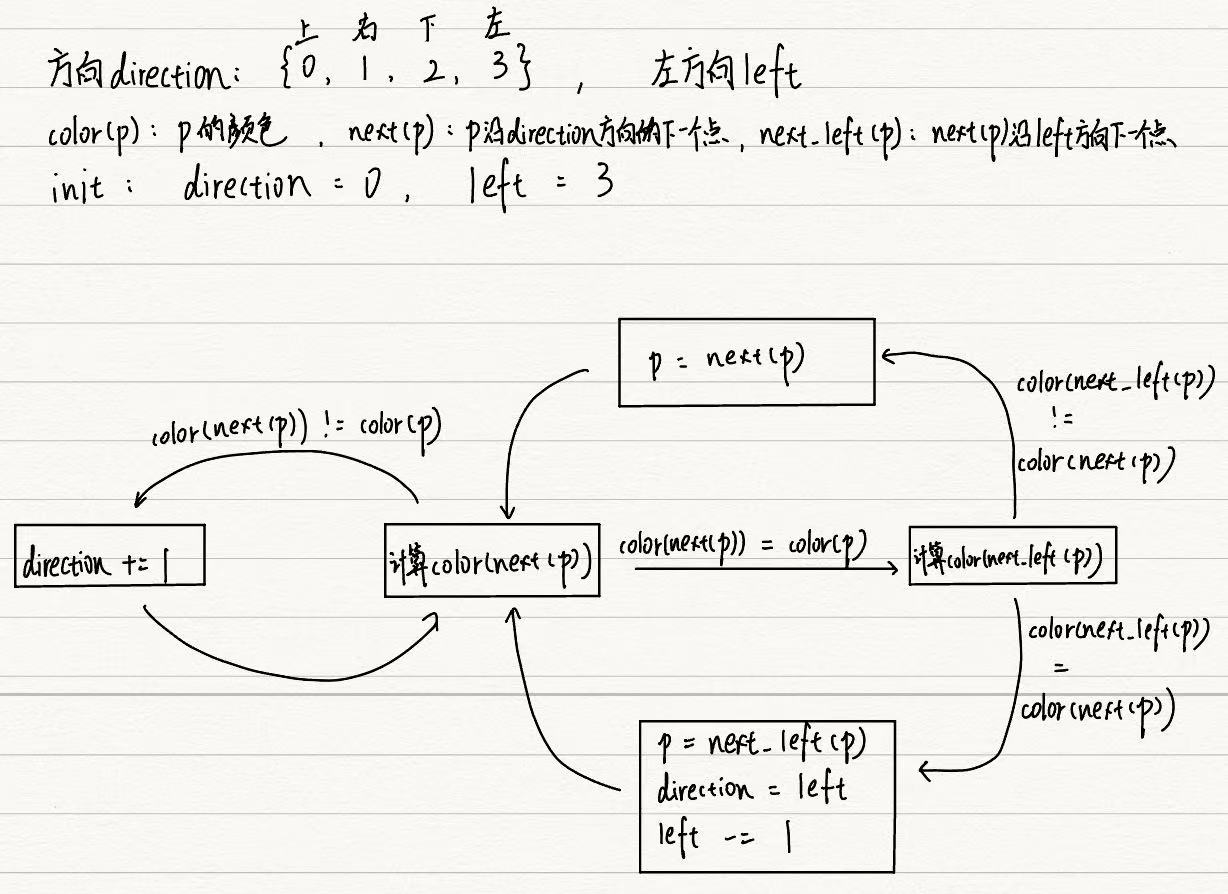 上 右 下 左
方向direction: {0, 1, 2, 3} , 左方向left
color(p): p的颜色 , next(p): p沿direction方向的下一个点, next_left(p): next(p)沿left方向下一个点
init: direction = 0, left = 3
p = next(p)
color(next_left(p))
!=
color(next(p))
color(next(p)) != color(p)
direction += 1
计算color(next(p))
color(next(p)) = color(p)
计算color(next_left(p))
color(next_left(p))
=
color(next(p))
p = next_left(p)
direction = left
left -= 1